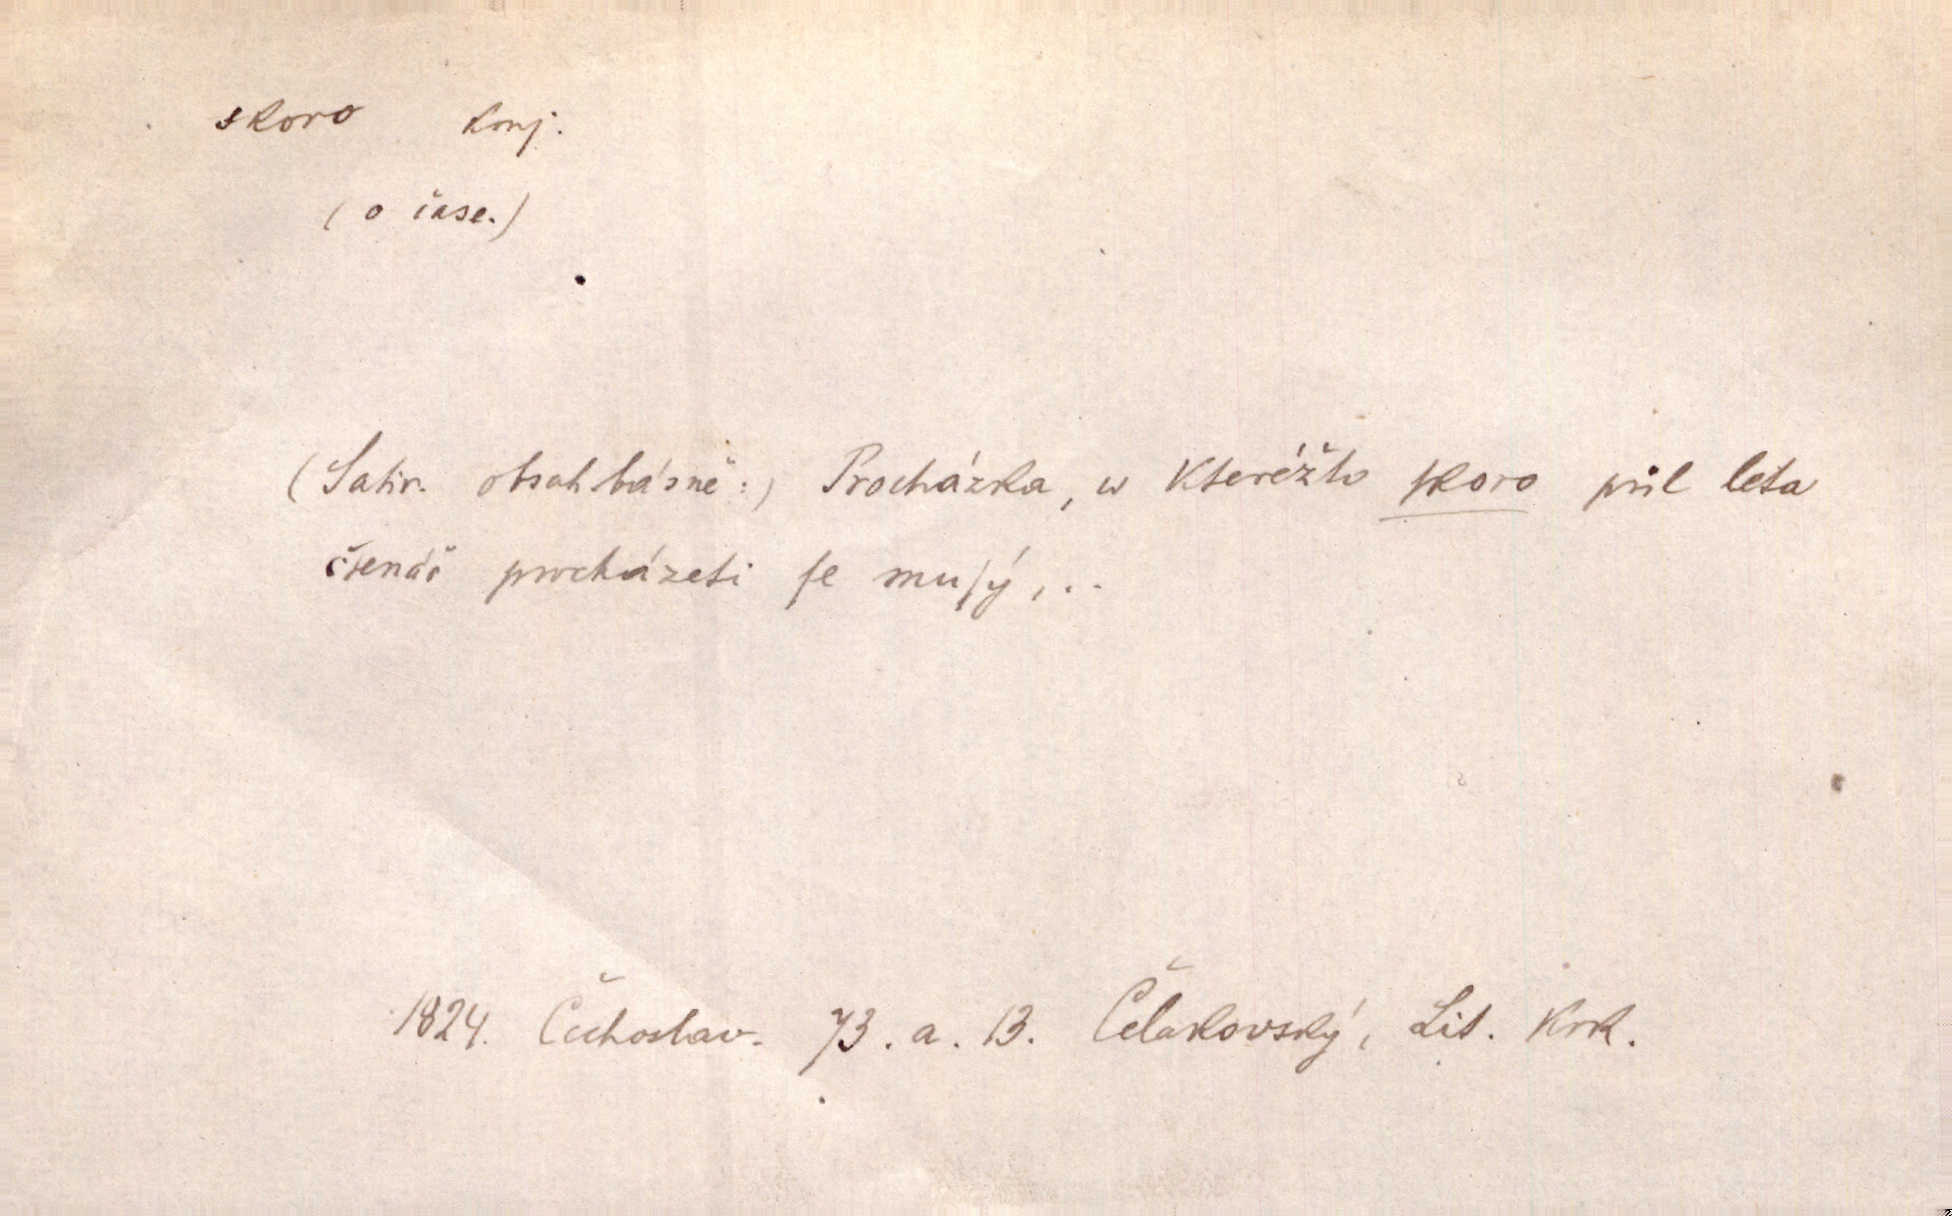 skoro konj.
(o čase.)
(Satir. obsah básně:) Procházka, w kteréžto ſkoro půl léta
čtenář procházeti ſe muſý, ..
1824. Čechoslav. 73. a. 13. Čelakovský, Lit. Krk.